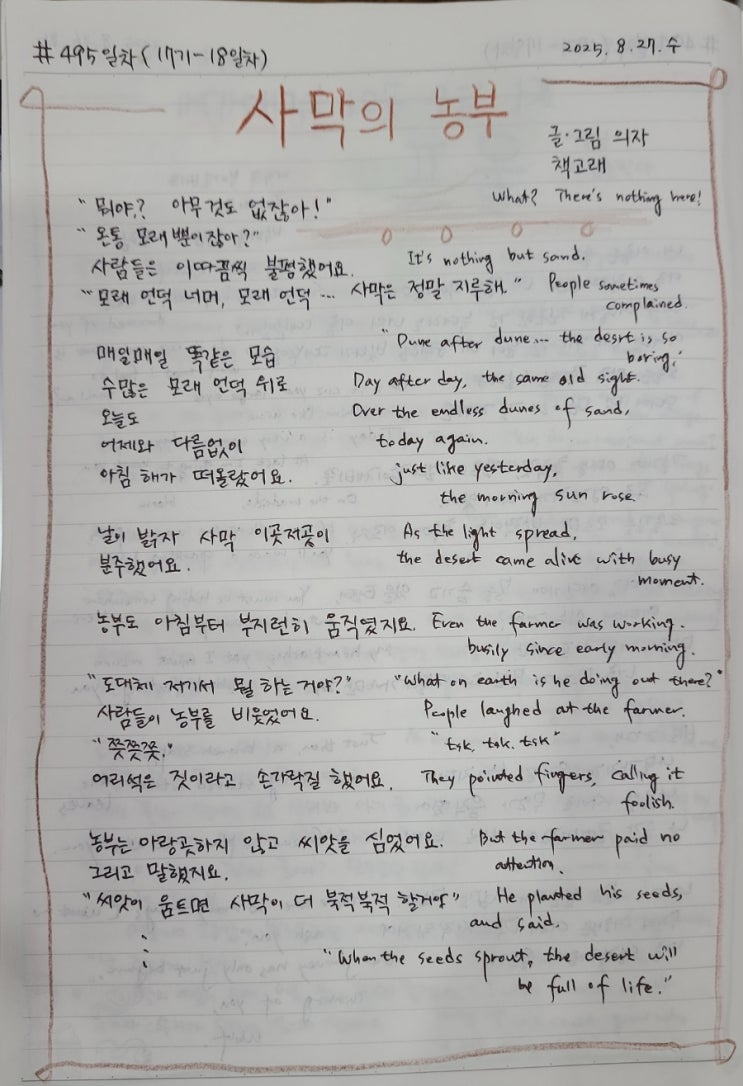 #495일차 (17기-18일차)
2025. 8. 27. 수
사막의 농부
글·그림 의자
책고래
"뭐야? 아무것도 없잖아!"
What? There's nothing here!
"온통 모래뿐이잖아?"
It's nothing but sand.
사람들은 이따끔씩 불평했어요.
People sometimes
complained.
"모래 언덕 너머, 모래 언덕 … 사막은 정말 지루해."
"Dune after dune… the desrt is so
boring."
매일매일 똑같은 모습
Day after day, the same old sight.
수많은 모래 언덕 위로
Over the endless dunes of sand,
오늘도
today again.
어제와 다름없이
just like yesterday,
아침 해가 떠올랐어요.
the morning sun rose.
날이 밝자 사막 이곳저곳이
As the light spread,
분주했어요.
the desert came alive with busy
moment.
농부도 아침부터 부지런히 움직였지요.
Even the farmer was working.
busily since early morning.
"도대체 저기서 뭘 하는거야?"
"What on earth is he doing out there?"
사람들이 농부를 비웃었어요.
People laughed at the farmer.
"쯧쯧쯧."
"tsk, tsk. tsk"
어리석은 짓이라고 손가락질 했어요.
They pointed fingers, calling it
foolish.
농부는 아랑곳하지 않고 씨앗을 심었어요.
But the farmer paid no
attention.
그리고 말했지요.
He planted his seeds,
and said.
"씨앗이 움트면 사막이 더 북적북적 할거야"
"When the seeds sprout, the desert will
be full of life."